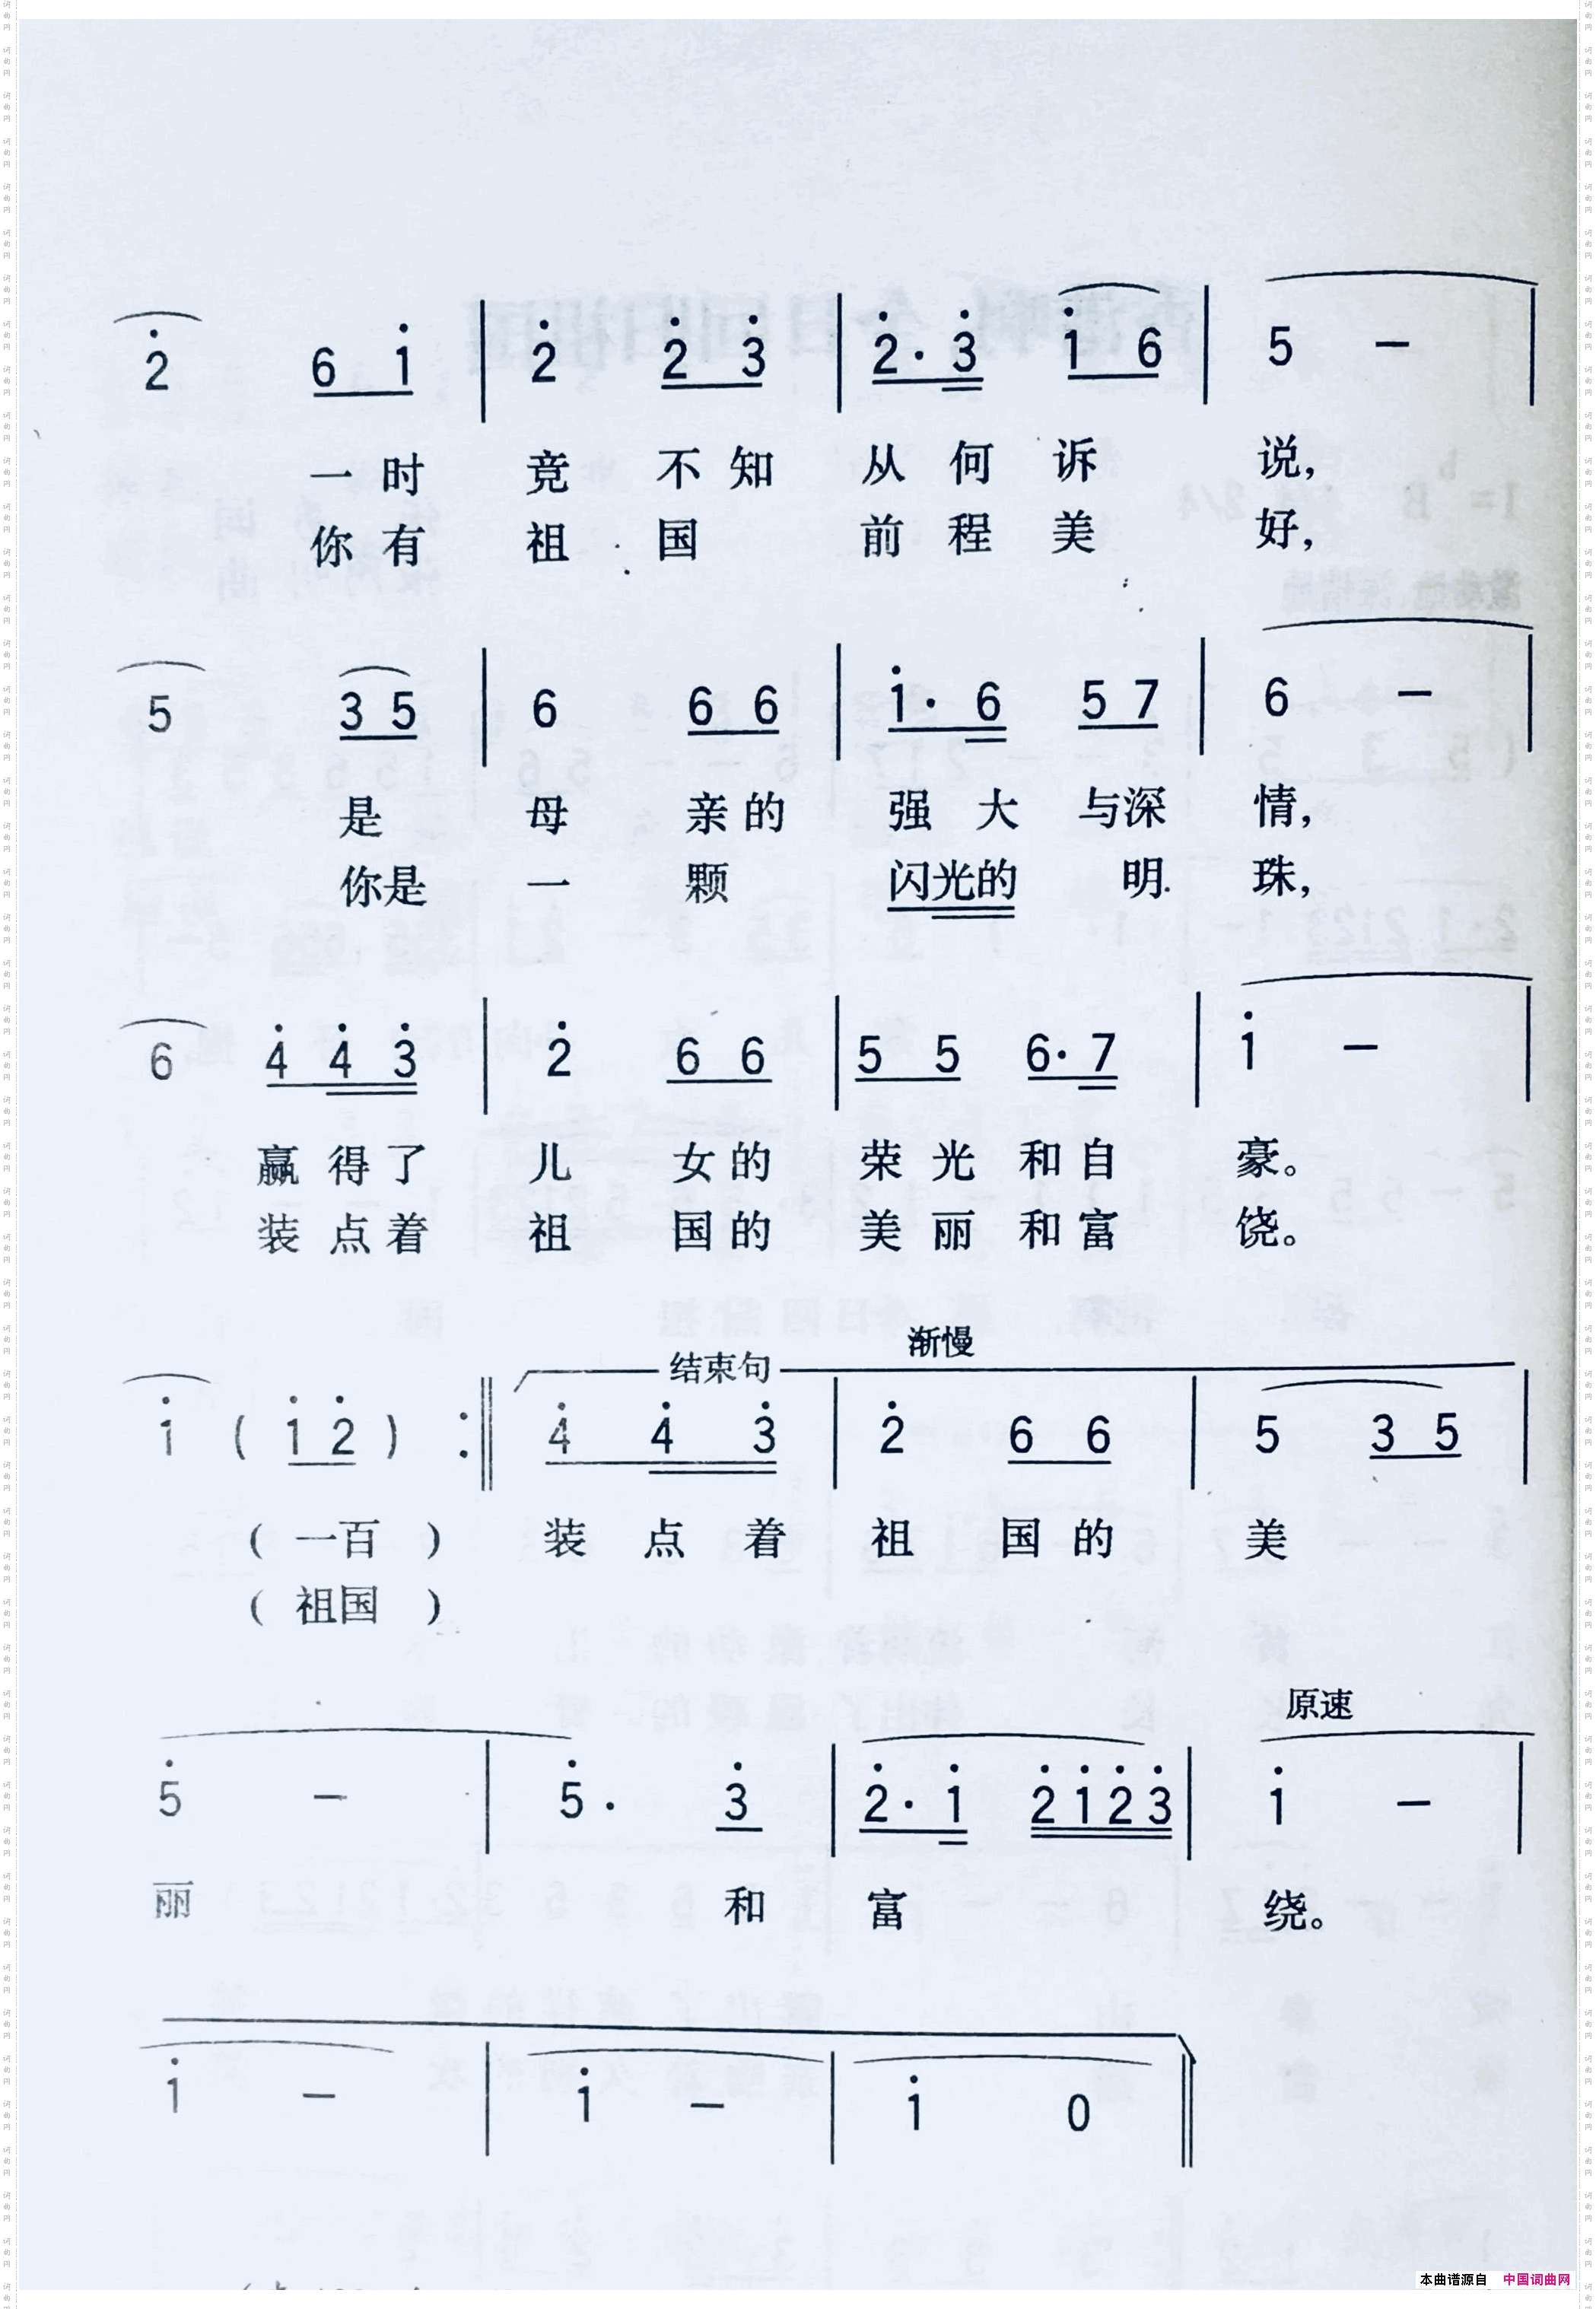 2̇ 6 1̇ | 2̇ 2̇ 3̇ | 2̇· 3̇ 1̇ 6 | 5 － |
一时 竞 不知 从何诉 说，
你有 祖国 前程美 好，
5 3 5 | 6 6 6 | 1̇· 6 5 7 | 6 － |
是 母 亲的 强大与深 情，
你是 一 颗 闪光的 明 珠，
6 4̇ 4̇ 3̇ | 2̇ 6 6 | 5 5 6· 7 | 1̇ － |
赢得了 儿 女的 荣光和自 豪。
装点着 祖 国的 美丽和富 饶。
结束句 渐慢
1̇ ( 1̇ 2̇ ) :‖ 4̇ 4̇ 3̇ | 2̇ 6 6 | 5 3 5 |
( 一百 ) 装点着 祖 国的 美
( 祖国 )
原速
5̇ － | 5̇· 3̇ | 2̇· 1̇ 2̇ 1̇ 2̇ 3̇ | 1̇ － |
丽 和 富 绕。
1̇ － | 1̇ － | 1̇ 0 ‖
本曲谱源自 中国词曲网